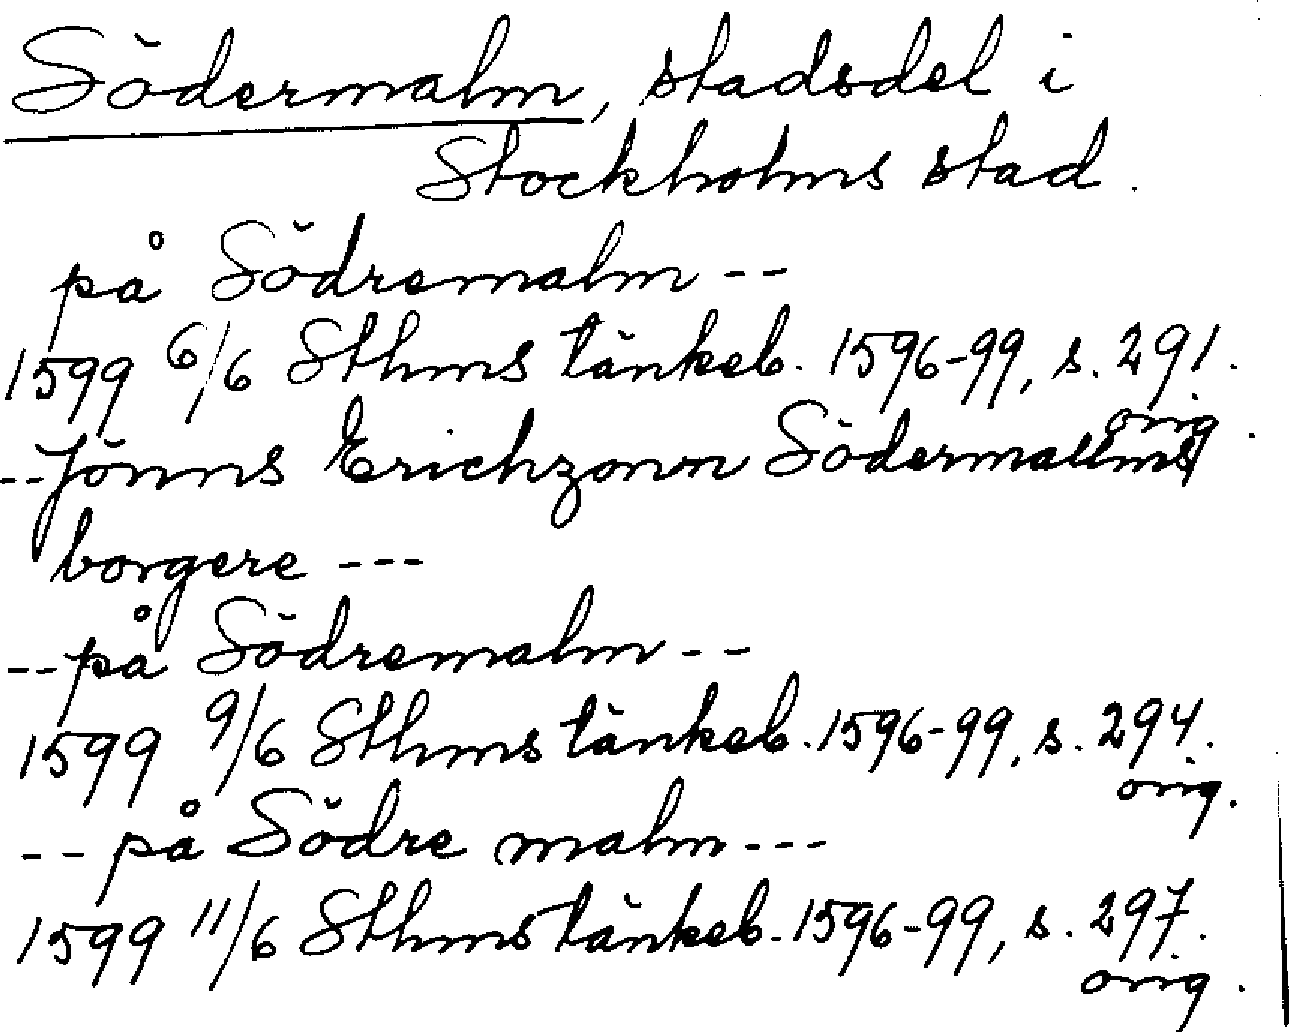 Södermalm, stadsdel i
Stockholms stad.
på Södremalm --
1599 6/6 Sthms tänkeb. 1596-99, s. 291.
orig.
--Jönns Erichzonn Södermallms
borgere ---
--på Södremalm --
1599 9/6 Sthms tänkeb. 1596-99, s. 294.
orig.
-- på Södre malm ---
1599 11/6 Sthms tänkeb. 1596-99, s. 297.
orig.